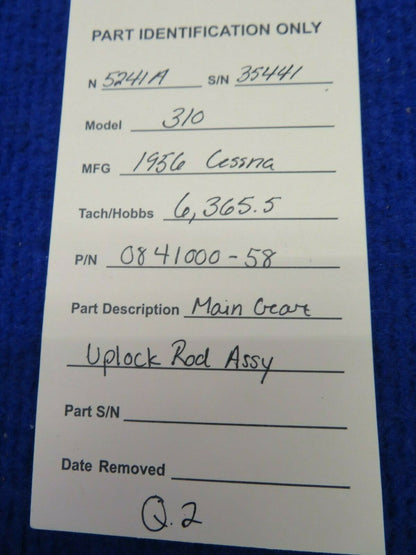 PART IDENTIFICATION ONLY
N 5241A S/N 35441
Model 310
MFG 1956 Cessna
Tach/Hobbs 6,365.5
P/N 0841000-58
Part Description Main Gear
Uplock Rod Assy
Part S/N
Date Removed
Q.2